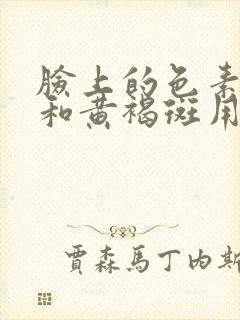 臉上的色素
和黃褐斑用
賈森馬丁內斯